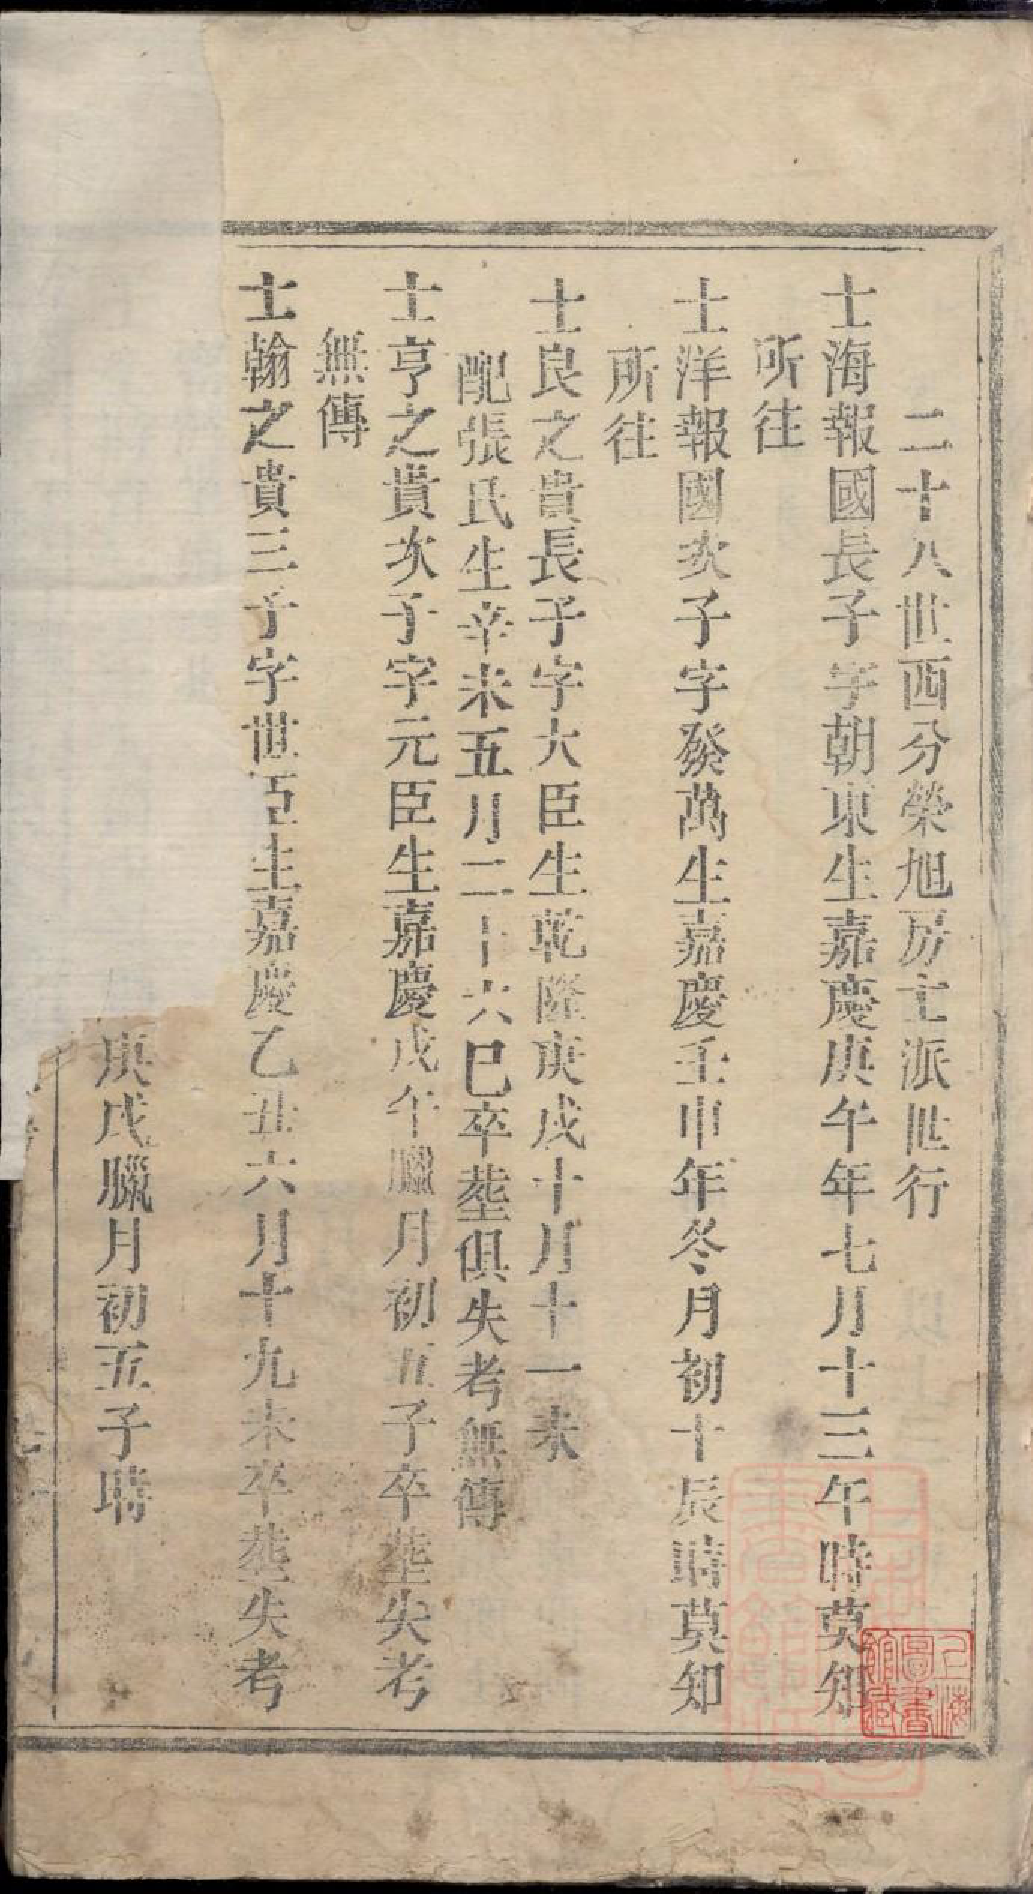 二十八世酉分榮旭房士派世行
士海報國長子字朝東生嘉慶庚午年七月十三午時莫知
所往
士洋報國次子字發萬生嘉慶壬申年冬月初十辰時莫知
所往
士良之貴長子字大臣生乾隆庚戌十月十一未
配張氏生辛未五月二十六巳卒塟俱失考無傳
士亨之貴次子字元臣生嘉慶戊午臘月初五子卒塟失考
無傳
士翰之貴三子字世臣生嘉慶乙丑六月十九未卒塟失考
庚戌臘月初五子時
上海圖書館藏